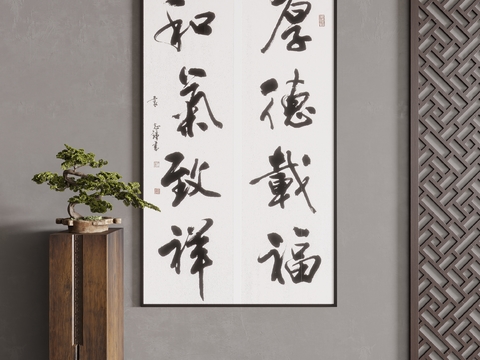 厚德載福
和氣致祥